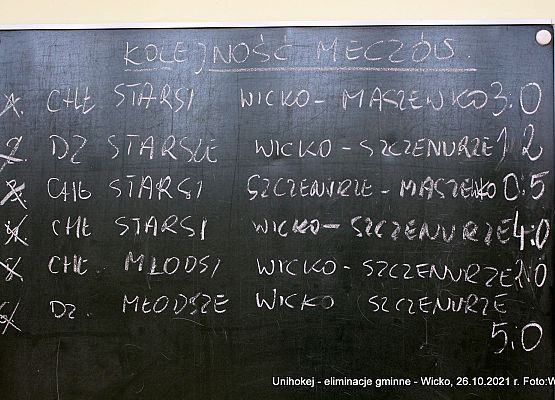 KOLEJNOŚĆ MECZÓW.
1. CHŁ STARSI WICKO - MASZEWKO 3:0
2. DZ STARSZE WICKO - SZCZENURZE 1:2
3. CHŁ STARSI SZCZENURZE - MASZEWKO 0:5
4. CHŁ STARSI WICKO - SZCZENURZE 4:0
5. CHŁ. MŁODSI WICKO - SZCZENURZE 2:0
6. DZ. MŁODSZE WICKO SZCZENURZE
5:0
Unihokej - eliminacje gminne - Wicko, 26.10.2021 r. Foto:W